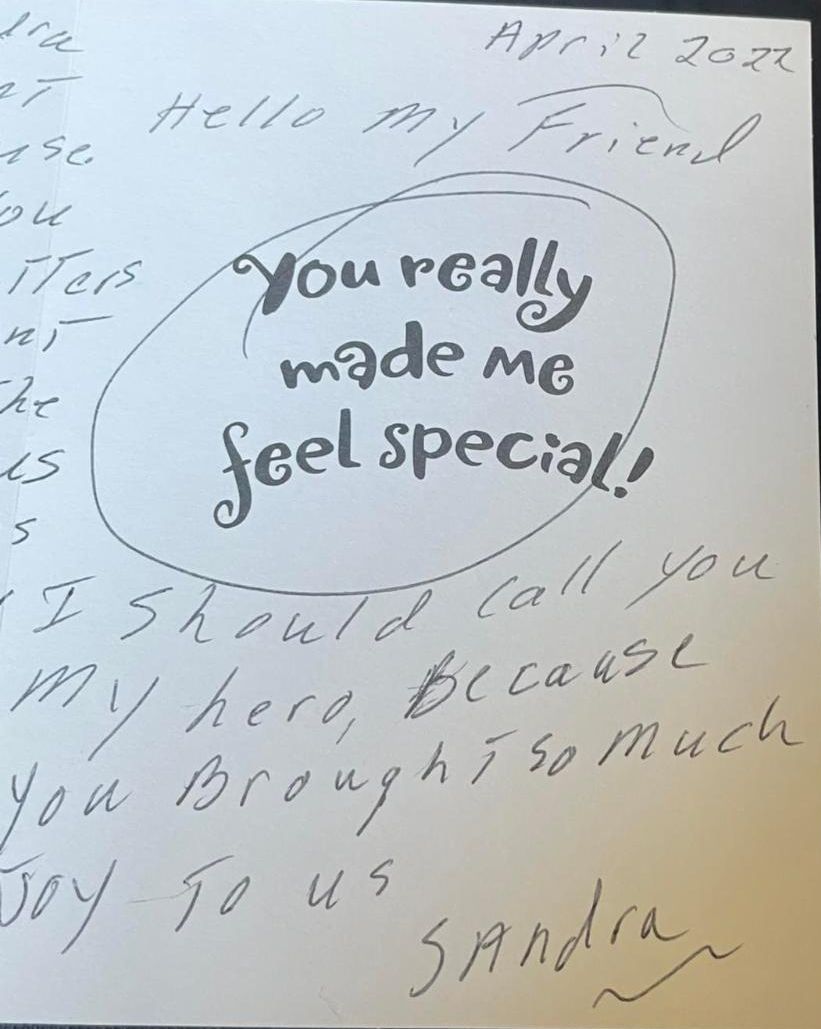 April 2022
Hello my Friend
you really
made me
feel special!
I should call you
my hero, Because
you Brought so much
Joy To us
SAndra